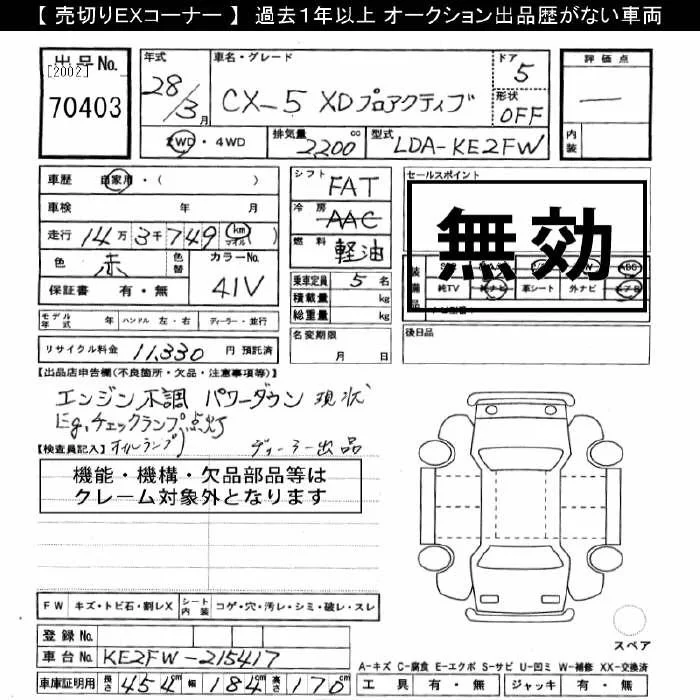 【 売切りEXコーナー 】 過去１年以上 オークション出品歴がない車両
出品No.
[2002]
70403
年式
28/3月
車名・グレード
CX-5 XDプロアクティブ
ドア
5
形状
OFF
評価点
―
内装
2WD・4WD
排気量
2200cc
型式
LDA-KE2FW
車歴 自家用・( )
車検 年 月
走行 14万3千749 (km マイル)
色 赤
色替
カラーNo.
41V
保証書 有・無
モデル年式 年 ハンドル 左・右 ディーラー・並行
リサイクル料金 11,330 円 預託済
シフト
FAT
冷房
AAC
燃料
軽油
乗車定員 5 名
積載量 kg
総重量 kg
名変期限
月 日
セールスポイント
無効
装備品
純TV 純ナビ 革シート 外ナビ
後日品
【出品店申告欄(不良箇所・欠品・注意事項等)】
エンジン不調 パワーダウン 現状
Eg,チェックランプ点灯
オイルランプ
【検査員記入】
ディーラー出品
機能・機構・欠品部品等は
クレーム対象外となります
FW キズ・トビ石・割レX シート内装 コゲ・穴・汚レ・シミ・破レ・スレ
登録No.
車台No. KE2FW-215417
車庫証明用 長さ 454cm 幅 184cm 高さ 170cm
スペア
A-キズ C-腐食 E-エクボ S-サビ U-凹ミ W-補修 XX-交換済
工具 有・無 ジャッキ 有・無